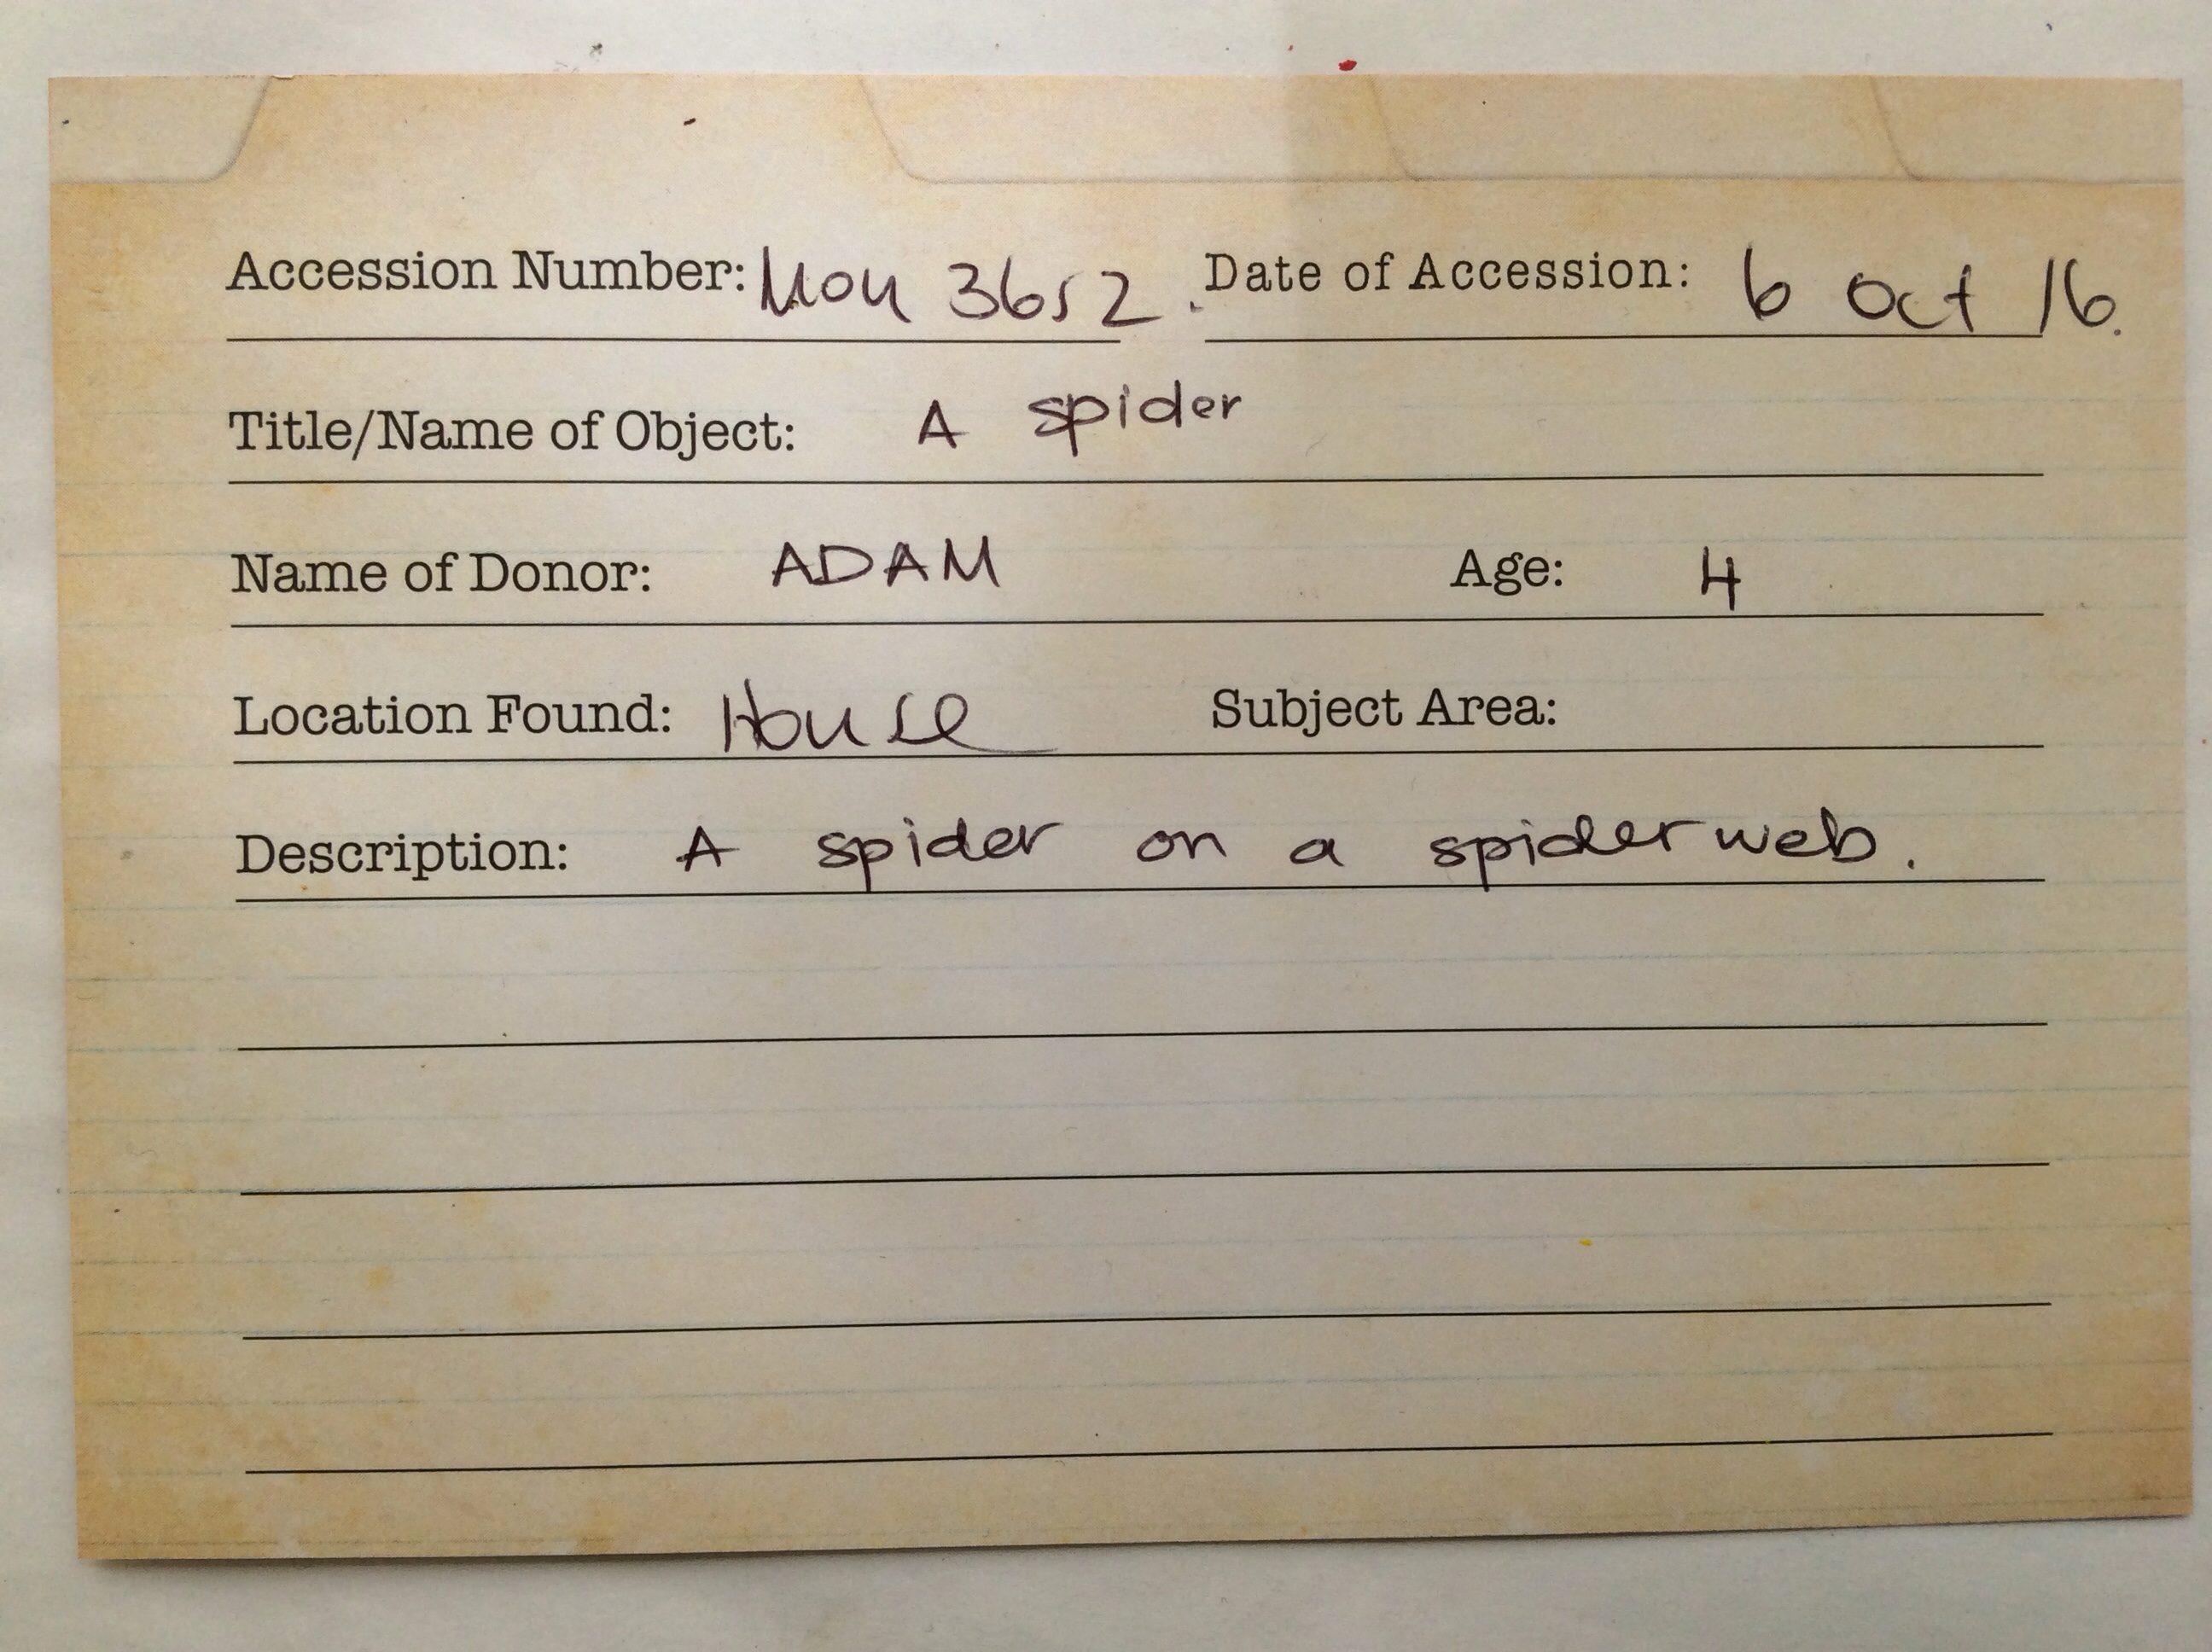 Accession Number: Mou 3652. Date of Accession: 6 Oct 16.
Title/Name of Object: A spider
Name of Donor: ADAM Age: 4
Location Found: House Subject Area:
Description: A spider on a spiderweb.